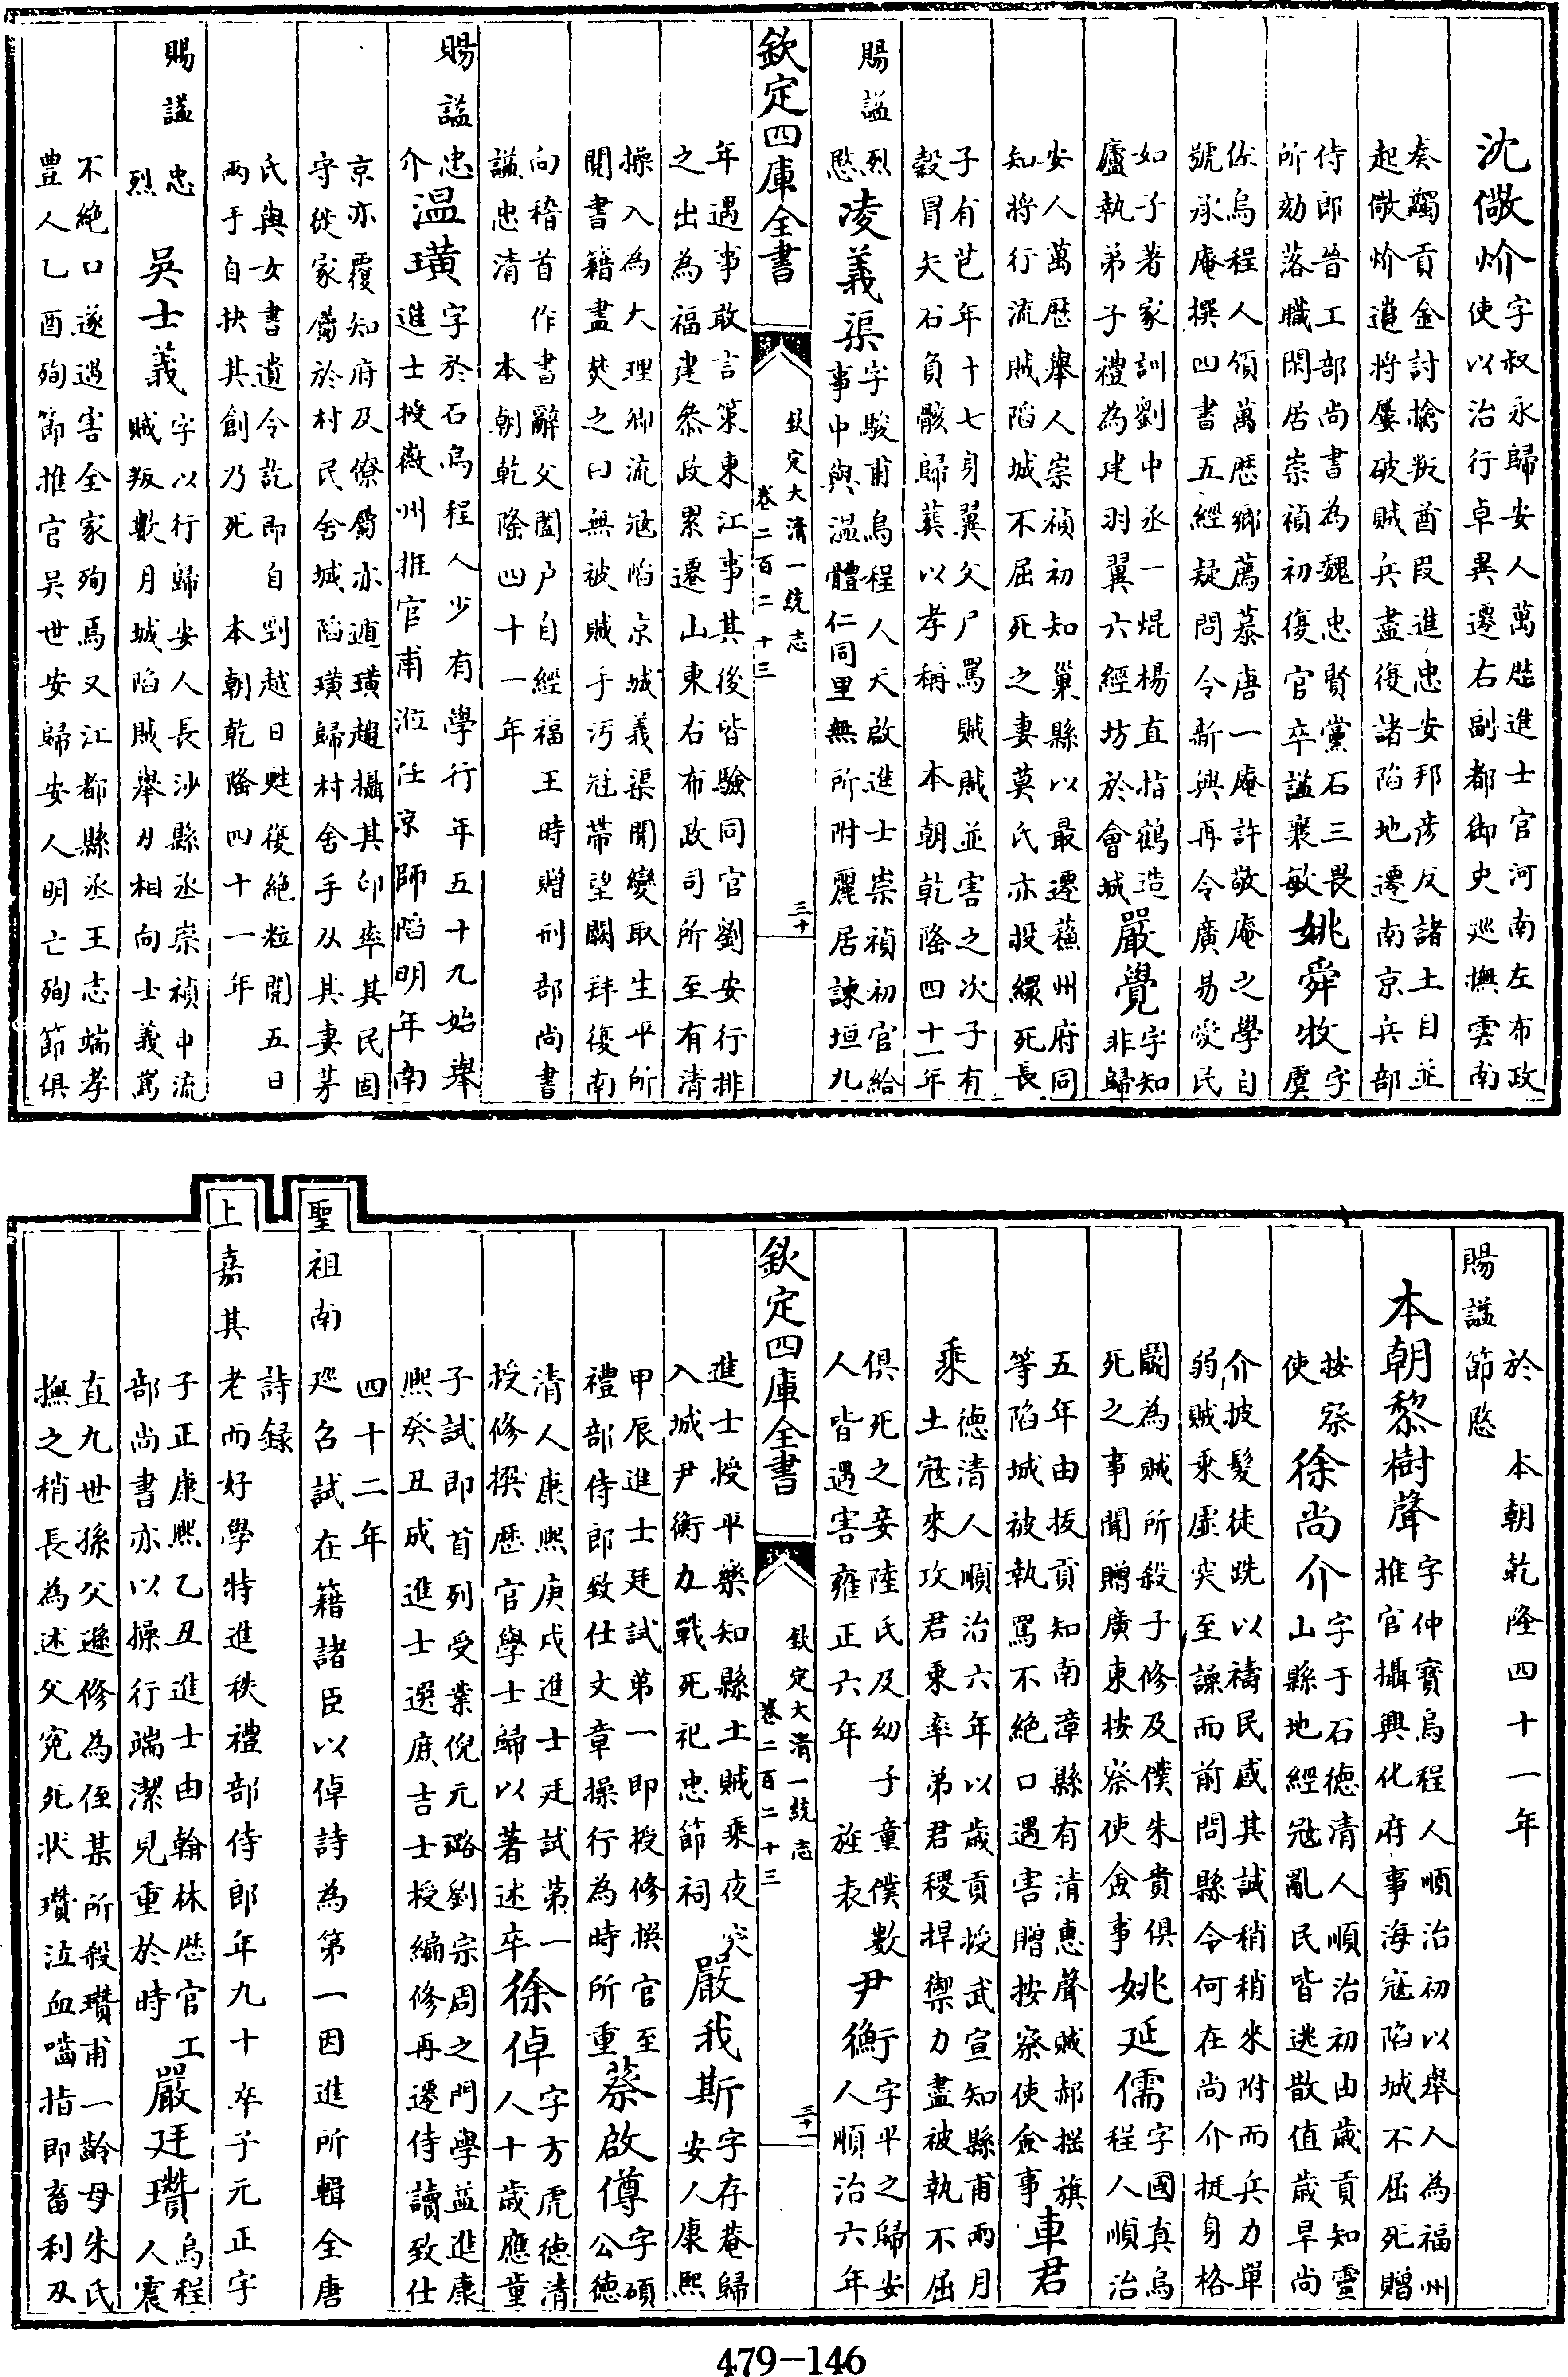 沈儆炌字叔永歸安人萬歴進士官河南左布政
使以治行卓異遷右副都御史巡撫雲南
奏蠲貢金討擒叛酋叚進忠安邦彦反諸土目並
起儆炌遣將屢破賊兵盡復諸陷地遷南京兵部
侍郎晉工部尚書為魏忠賢黨石三畏
所劾落職閑居崇禎初復官卒諡襄敏姚舜牧字虞
佐烏程人領萬歴鄉薦慕唐一庵許敬庵之學自
號承庵撰四書五經疑問令新興再令廣昜愛民
如子著家訓劉中丞一焜楊直指鶴造
廬執弟子禮為建羽翼六經坊於會城嚴覺字知非歸
安人萬歴舉人崇禎初知巢縣以最遷蘇州府同
知將行流賊陷城不屈死之妻莫氏亦投繯死長
子有芑年十七身翼父尸罵賊賊並害之次子有
穀冒矢石負骸歸葬以孝稱本朝乾隆四十一年
賜諡烈愍凌義渠字駿甫烏程人天啟進士崇禎初官給
事中與溫體仁同里無所附麗居諫垣九
年遇事敢言策東江事其後皆驗同官劉安行排
之出為福建叅政累遷山東右布政司所至有清
操入為大理卿流冦陷京城義渠聞變取生平所
閱書籍盡焚之曰無被賊手汚冠帶望闕拜復南
向稽首作書辭父闔户自經福王時贈刑部尚書
諡忠清本朝乾隆四十一年
賜諡忠介温璜字於石烏程人少有學行年五十九始舉
進士授徽州推官甫涖任京師陷明年南
京亦覆知府及僚屬亦遁璜趣攝其印率其民固
守從家屬於村民舍城陷璜歸村舍手刃其妻茅
氏與女書遺令訖即自刭越日甦復絶粒閲五日
兩手自抉其創乃死本朝乾隆四十一年
賜諡忠烈吳士義字以行歸安人長沙縣丞崇禎中流
賊叛數月城陷賊舉刀相向士義罵
不絶口遂遇害全家殉焉又江都縣丞王志端孝
豊人乙酉殉節推官吳世安歸安人明亡殉節俱
欽定四庫全書
欽定大清一統志
卷二百二十三
三十
賜諡節愍於本朝乾隆四十一年
本朝黎樹聲字仲寳烏程人順治初以舉人為福州
推官攝興化府事海冦陷城不屈死贈
按察使徐尚介字于石德清人順治初由歲貢知靈
山縣地經冦亂民皆逃散值歲早尚
介披髪徒跣以禱民感其誠稍稍來附而兵力單
弱賊乘虚突至譟而前問縣令何在尚介挺身格
鬬為賊所殺子修及僕朱貴俱
死之事聞贈廣東按察使僉事姚延儒字國真烏程人順治
五年由拔貢知南漳縣有清惠聲賊郝摇旗
等陷城被執罵不絶口遇害贈按察使僉事車君
乘德清人順治六年以歲貢授武宣知縣甫兩月
土冦來攻君乘率弟君稷捍禦力盡被執不屈
俱死之妾陸氏及幼子童僕數
人皆遇害雍正六年旌表尹衡字平之歸安人順治六年
進士授平樂知縣土賊乘夜突
入城尹衡力戰死祀忠節祠嚴我斯字存菴歸安人康熙
甲辰進士廷試第一即授修撰官至
禮部侍郎致仕文章操行為時所重蔡啟僔字碩公德
清人康熙庚戌進士廷試第一
授修撰歴官學士歸以著述卒徐倬字方虎德清人十歲應童
子試即首列受業倪元璐劉宗周之門學益進康
熙癸丑成進士選庶吉士授編修再遷侍讀致仕
四十二年
聖祖南廵召試在籍諸臣以倬詩為第一因進所輯全唐
詩録
上嘉其老而好學特進秩禮部侍郎年九十卒子元正字
子正康熙乙丑進士由翰林歴官工
部尚書亦以操行端潔見重於時嚴廷瓚烏程人震
直九世孫父遜修為侄某所殺瓚甫一齡母朱氏
撫之稍長為述父寃死狀瓚泣血嚙指即畜利刃
欽定四庫全書
欽定大清一統志
卷二百二十三
三十一
479-146